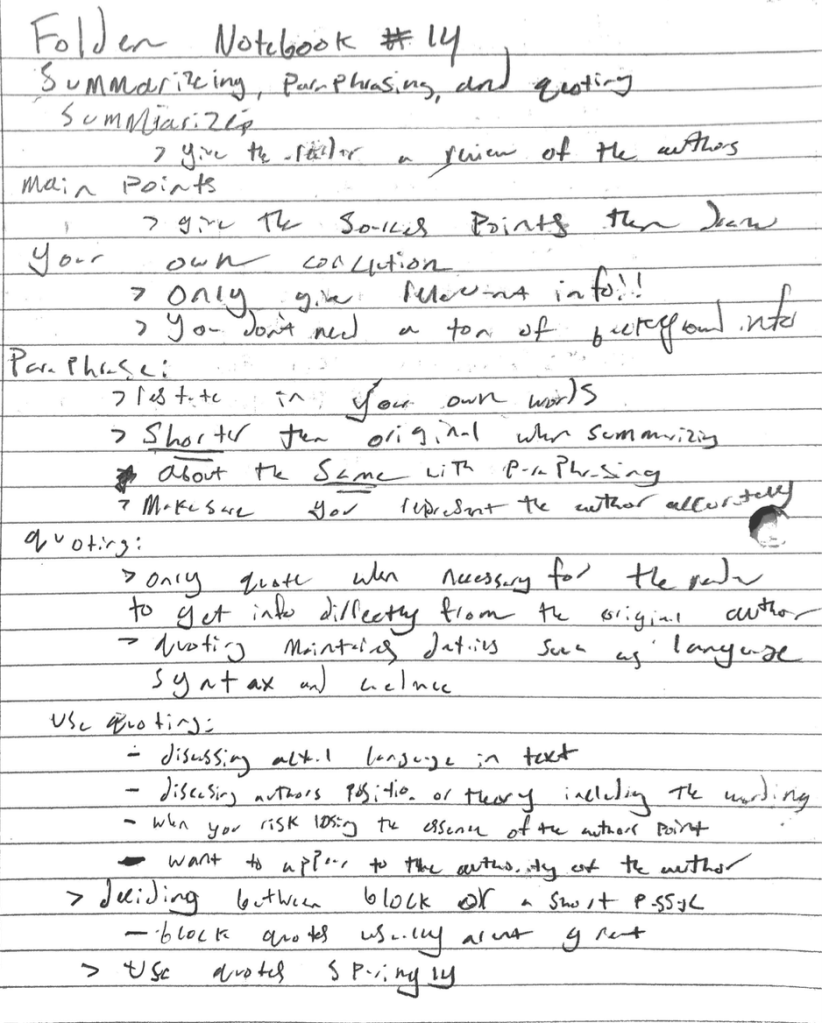 Folder Notebook #14
Summarizing, Paraphrasing, and quoting
Summarizing
> give the reader a review of the authors
main Points
> give the sources points then draw
your own conclution
> only give relevant info!!
> you don't need a ton of background info
Paraphrase:
> restate in your own words
> Shorter then original when summarizing
about the Same with ParaPhrasing
> Make sure you represent the author accurately
quoting:
> only quote when necessary for the reader
to get info directly from the original author
> quoting maintains details such as language
syntax and
use quoting:
- discussing actual language in text
- discussing authors position or theory including the wording
- when you risk losing the essence of the authors Point
- want to appeal to the authority of the author
> deciding between block or a short passage
- block quotes usually arent great
> use quotes sparingly